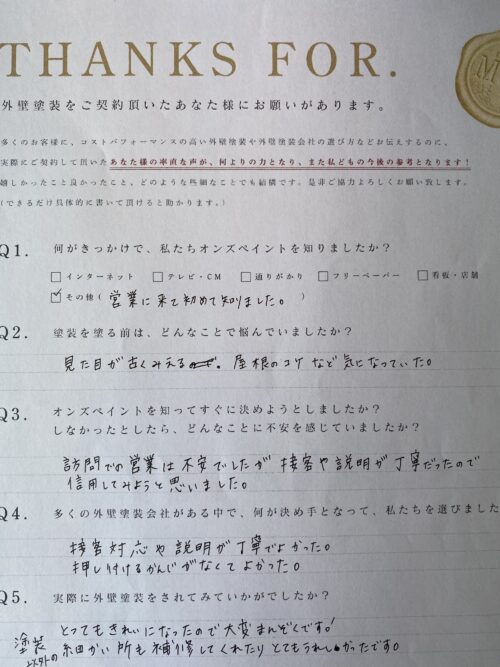 THANKS FOR.
外壁塗装をご契約頂いたあなた様にお願いがあります。
多くのお客様に、コストパフォーマンスの高い外壁塗装や外壁塗装会社の選び方などお伝えするのに、
実際にご契約して頂いたあなた様の率直な声が、何よりの力となり、また私どもの今後の参考となります!
嬉しかったこと良かったこと、どのような些細なことでも結構です。是非ご協力よろしくお願い致します。
(できるだけ具体的に書いて頂けると助かります。)
Q1. 何がきっかけで、私たちオンズペイントを知りましたか?
□インターネット □テレビ・CM □通りがかり □フリーペーパー □看板・店舗
☑その他( 営業に来て初めて知りました。 )
Q2. 塗装を塗る前は、どんなことで悩んでいましたか?
見た目が古くみえる 屋根のコケなど気になっていた。
Q3. オンズペイントを知ってすぐに決めようとしましたか?
しなかったとしたら、どんなことに不安を感じていましたか?
訪問での営業は不安でしたが 接客や説明が丁寧だったので
信用してみようと思いました。
Q4. 多くの外壁塗装会社がある中で、何が決め手となって、私たちを選びました
接客対応や説明が丁寧でよかった。
押し付けるかんじがなくてよかった。
Q5. 実際に外壁塗装をされてみていかがでしたか?
とってもきれいになったので大変まんぞくです!
塗装以外の細かい所も補修してくれたりとてもうれしかったです。